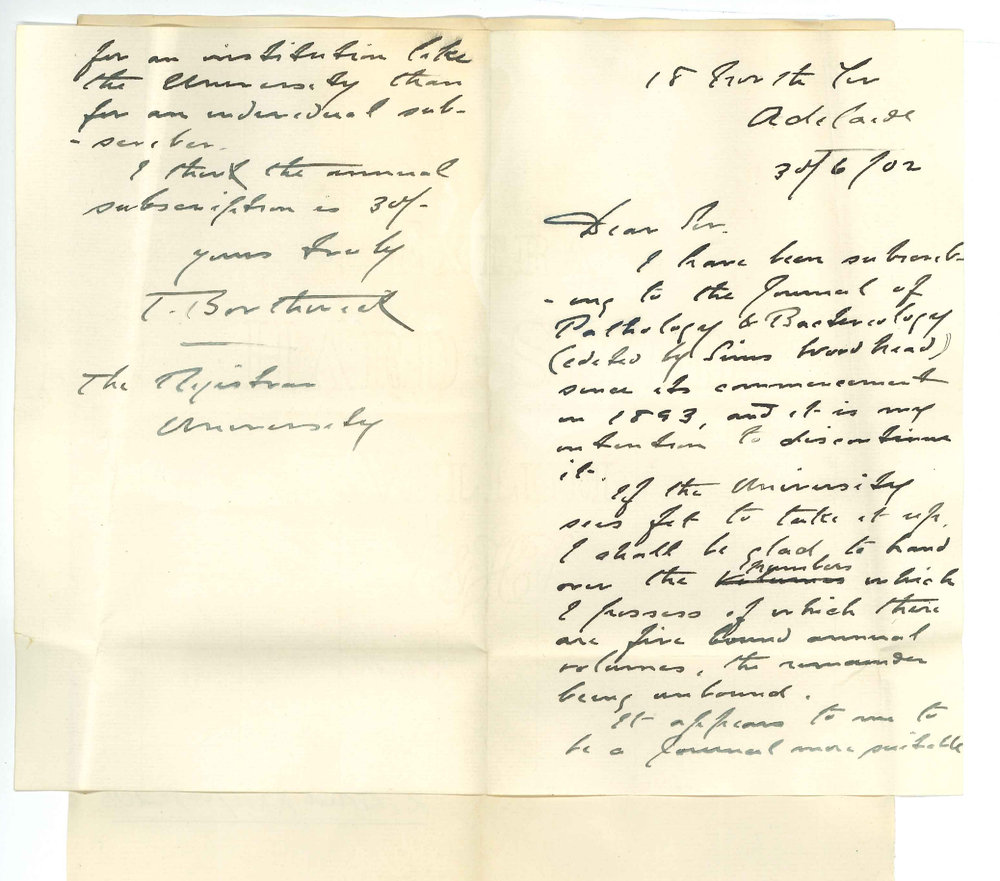 18 North Ter
Adelaide
30/6/02
Dear Sir.
I have been subscrib-
-ing to the Journal of
Pathology & Bacteriology
(edited by Sims Woodhead)
since its commencement
in 1893, and it is my
intention to discontinue
it.
If the University
sees fit to take it up,
I shall be glad to hand
numbers
over the volumes which
I possess of which there
are five bound annual
volumes, the remainder
being unbound.
It appears to me to
be a Journal more suitable
for an institution like
the University than
for an individual sub-
-scriber.
I think the annual
subscription is 30/-
yours truly
T. Borthwick
The Registrar
University